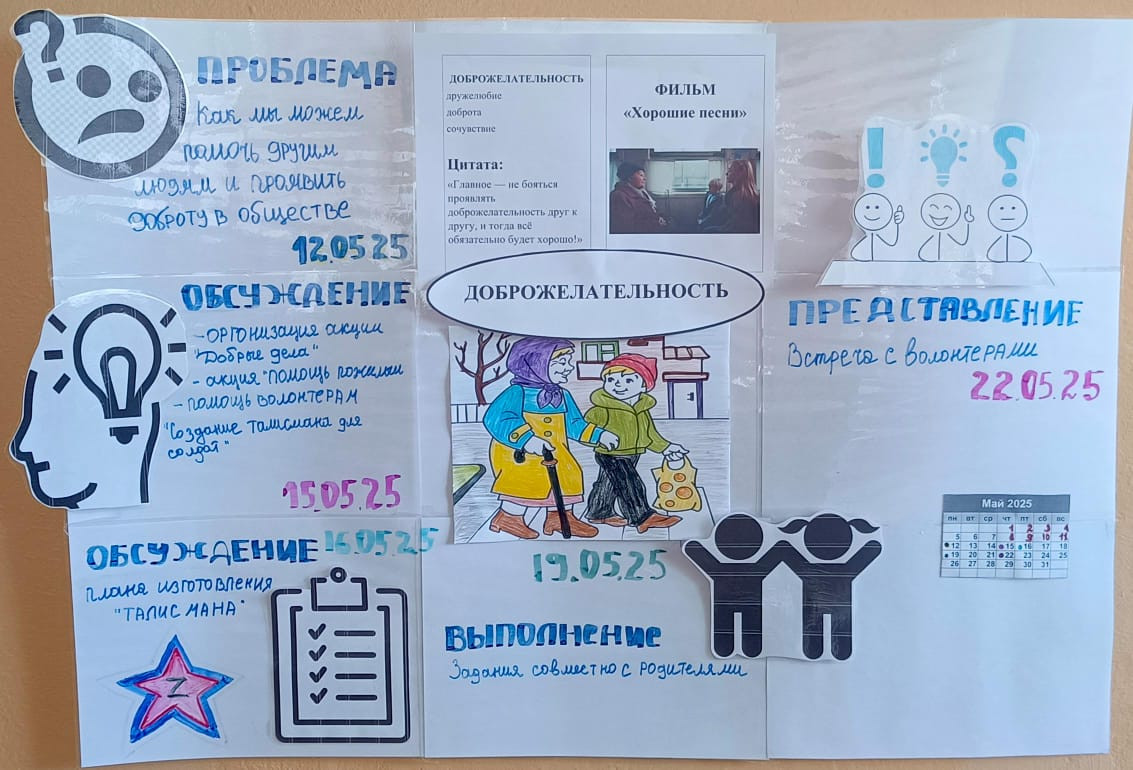 ПРОБЛЕМА
Как мы можем
помочь другим
людям и проявить
доброту в обществе
12.05.25
ДОБРОЖЕЛАТЕЛЬНОСТЬ
дружелюбие
доброта
сочувствие
Цитата:
«Главное — не бояться
проявлять
доброжелательность друг к
другу, и тогда всё
обязательно будет хорошо!»
ФИЛЬМ
«Хорошие песни»
! ?
ОБСУЖДЕНИЕ
-организация акции
"Добрые дела"
- акция "помощь пожилым
- помощь волонтерам
"Создание талисмана для
солдат"
15.05.25
ДОБРОЖЕЛАТЕЛЬНОСТЬ
ПРЕДСТАВЛЕНИЕ
Встреча с волонтерами
22.05.25
ОБСУЖДЕНИЕ 16.05.25
плана изготовления
"ТАЛИСМАНА"
Z
19.05.25
ВЫПОЛНЕНИЕ
Задания совместно с родителями
Май 2025
пн вт ср чт пт сб вс
1 2 3 4
5 6 7 8 9 10 11
12 13 14 15 16 17 18
19 20 21 22 23 24 25
26 27 28 29 30 31
?